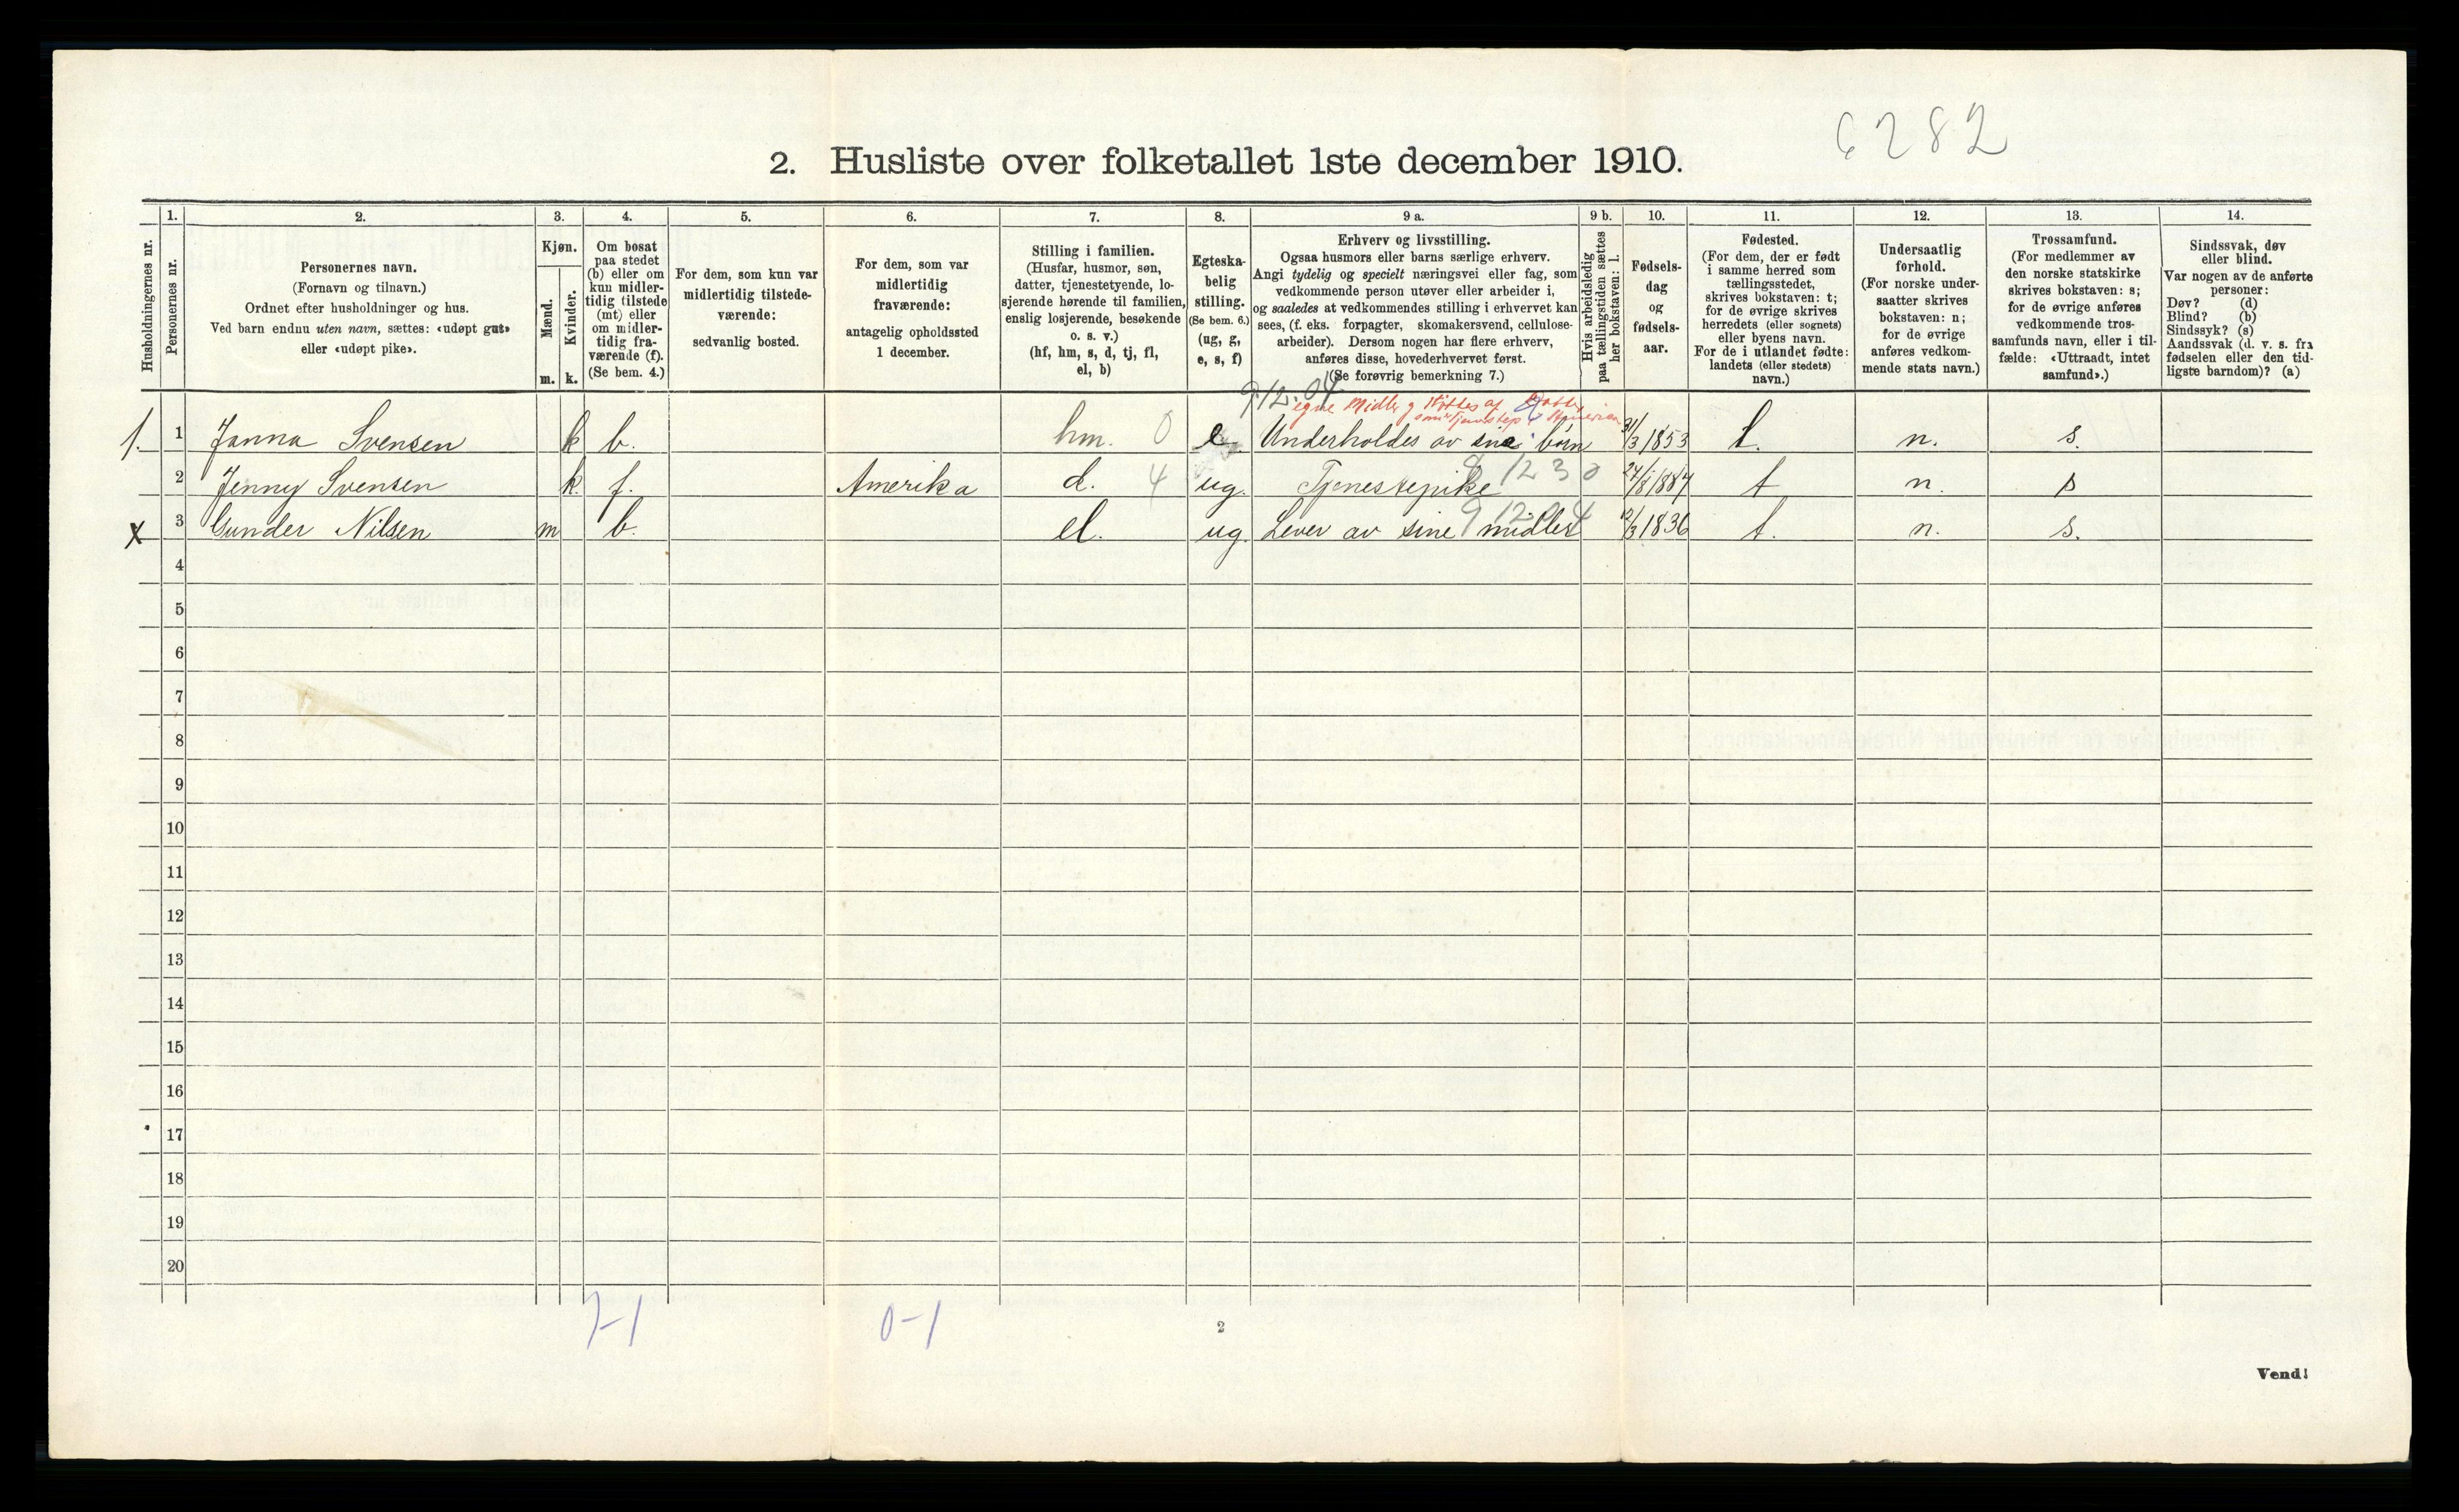 6282
2. Husliste over folketallet 1ste december 1910.
Husholdningernes nr.
1.
Personernes nr.
2.
Personernes navn.
(Fornavn og tilnavn.)
Ordnet efter husholdninger og hus.
Ved barn endnu uten navn, sættes: «udøpt gut»
eller «udøpt pike».
3.
Kjøn.
Mænd.
Kvinder.
m. k.
4.
Om bosat
paa stedet
(b) eller om
kun midler-
tidig tilstede
(mt) eller
om midler-
tidig fra-
værende (f).
(Se bem. 4.)
5.
For dem, som kun var
midlertidig tilstede-
værende:
sedvanlig bosted.
6.
For dem, som var
midlertidig
fraværende:
antagelig opholdssted
1 december.
7.
Stilling i familien.
(Husfar, husmor, søn,
datter, tjenestetyende, lo-
sjerende hørende til familien,
enslig losjerende, besøkende
o. s. v.)
(hf, hm, s, d, tj, fl,
el, b)
8.
Egteska-
belig
stilling.
(Se bem. 6.)
(ug, g,
e, s, f)
9 a.
Erhverv og livsstilling.
Ogsaa husmors eller barns særlige erhverv.
Angi tydelig og specielt næringsvei eller fag, som
vedkommende person utøver eller arbeider i,
og saaledes at vedkommendes stilling i erhvervet kan
sees, (f. eks. forpagter, skomakersvend, cellulose-
arbeider). Dersom nogen har flere erhverv,
anføres disse, hovederhvervet først.
(Se forøvrig bemerkning 7.)
9 b.
Hvis arbeidsledig
paa tællingstiden sættes
her bokstaven: l.
10.
Fødsels-
dag
og
fødsels-
aar.
11.
Fødested.
(For dem, der er født
i samme herred som
tællingsstedet,
skrives bokstaven: t;
for de øvrige skrives
herredets (eller sognets)
eller byens navn.
For de i utlandet fødte:
landets (eller stedets)
navn.)
12.
Undersaatlig
forhold.
(For norske under-
saatter skrives
bokstaven: n;
for de øvrige
anføres vedkom-
mende stats navn.)
13.
Trossamfund.
(For medlemmer av
den norske statskirke
skrives bokstaven: s;
for de øvrige anføres
vedkommende tros-
samfunds navn, eller i til-
fælde: «Uttraadt, intet
samfund».)
14.
Sindssvak, døv
eller blind.
Var nogen av de anførte
personer:
Døv? (d)
Blind? (b)
Sindssyk? (s)
Aandssvak (d. v. s. fra
fødselen eller den tid-
ligste barndom)? (a)
9.12.04
egne Midler
1. 1 Janna Svensen k b. hm. 0 e. Underholdes av sine børn 31/3 1853 t. n. s.
2 Jenny Svensen k. f. Amerika d. 4 ug. Tjenestepike 8 1230 24/8 1887 t n. s
x 3 Gunder Nilsen m b. el. ug. Lever av sine midler 9 1204 12/3 1836 t. n. s.
4
5
6
7
8
9
10
11
12
13
14
15
16
17
18
19
20
7-1 0-1
2
Vend!